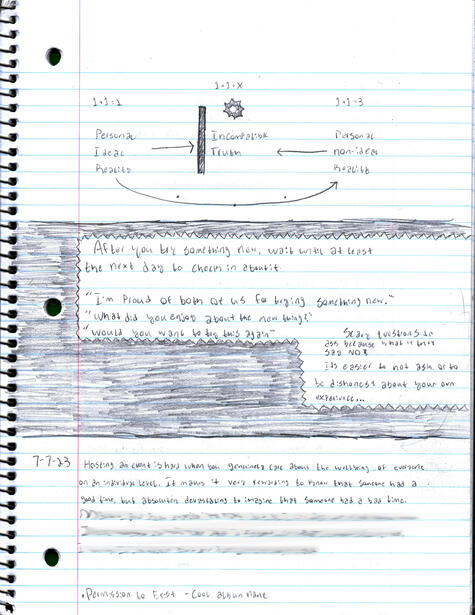 1+1=X
1+1=2
1+1=3
Personal
Ideal
Reality
Incompatible
Truth
Personal
non-ideal
Reality
After you try something new, wait until at least
the next day to check in about it.
"I'm proud of both of us for trying something new."
"What did you enjoy about the new thing?"
"would you want to try this again"
Scary questions to
ask because what if they
say NO?
Its easier to not ask, or to
be dishonest about your own
experience...
7-7-23
Hosting an event is hard when you genuinely care about the wellbeing of everyone
on an individual level. It makes it very rewarding to know that someone had a
good time, but absolutely devastating to imagine that someone had a bad time.
Permission to Exist - Cool album name